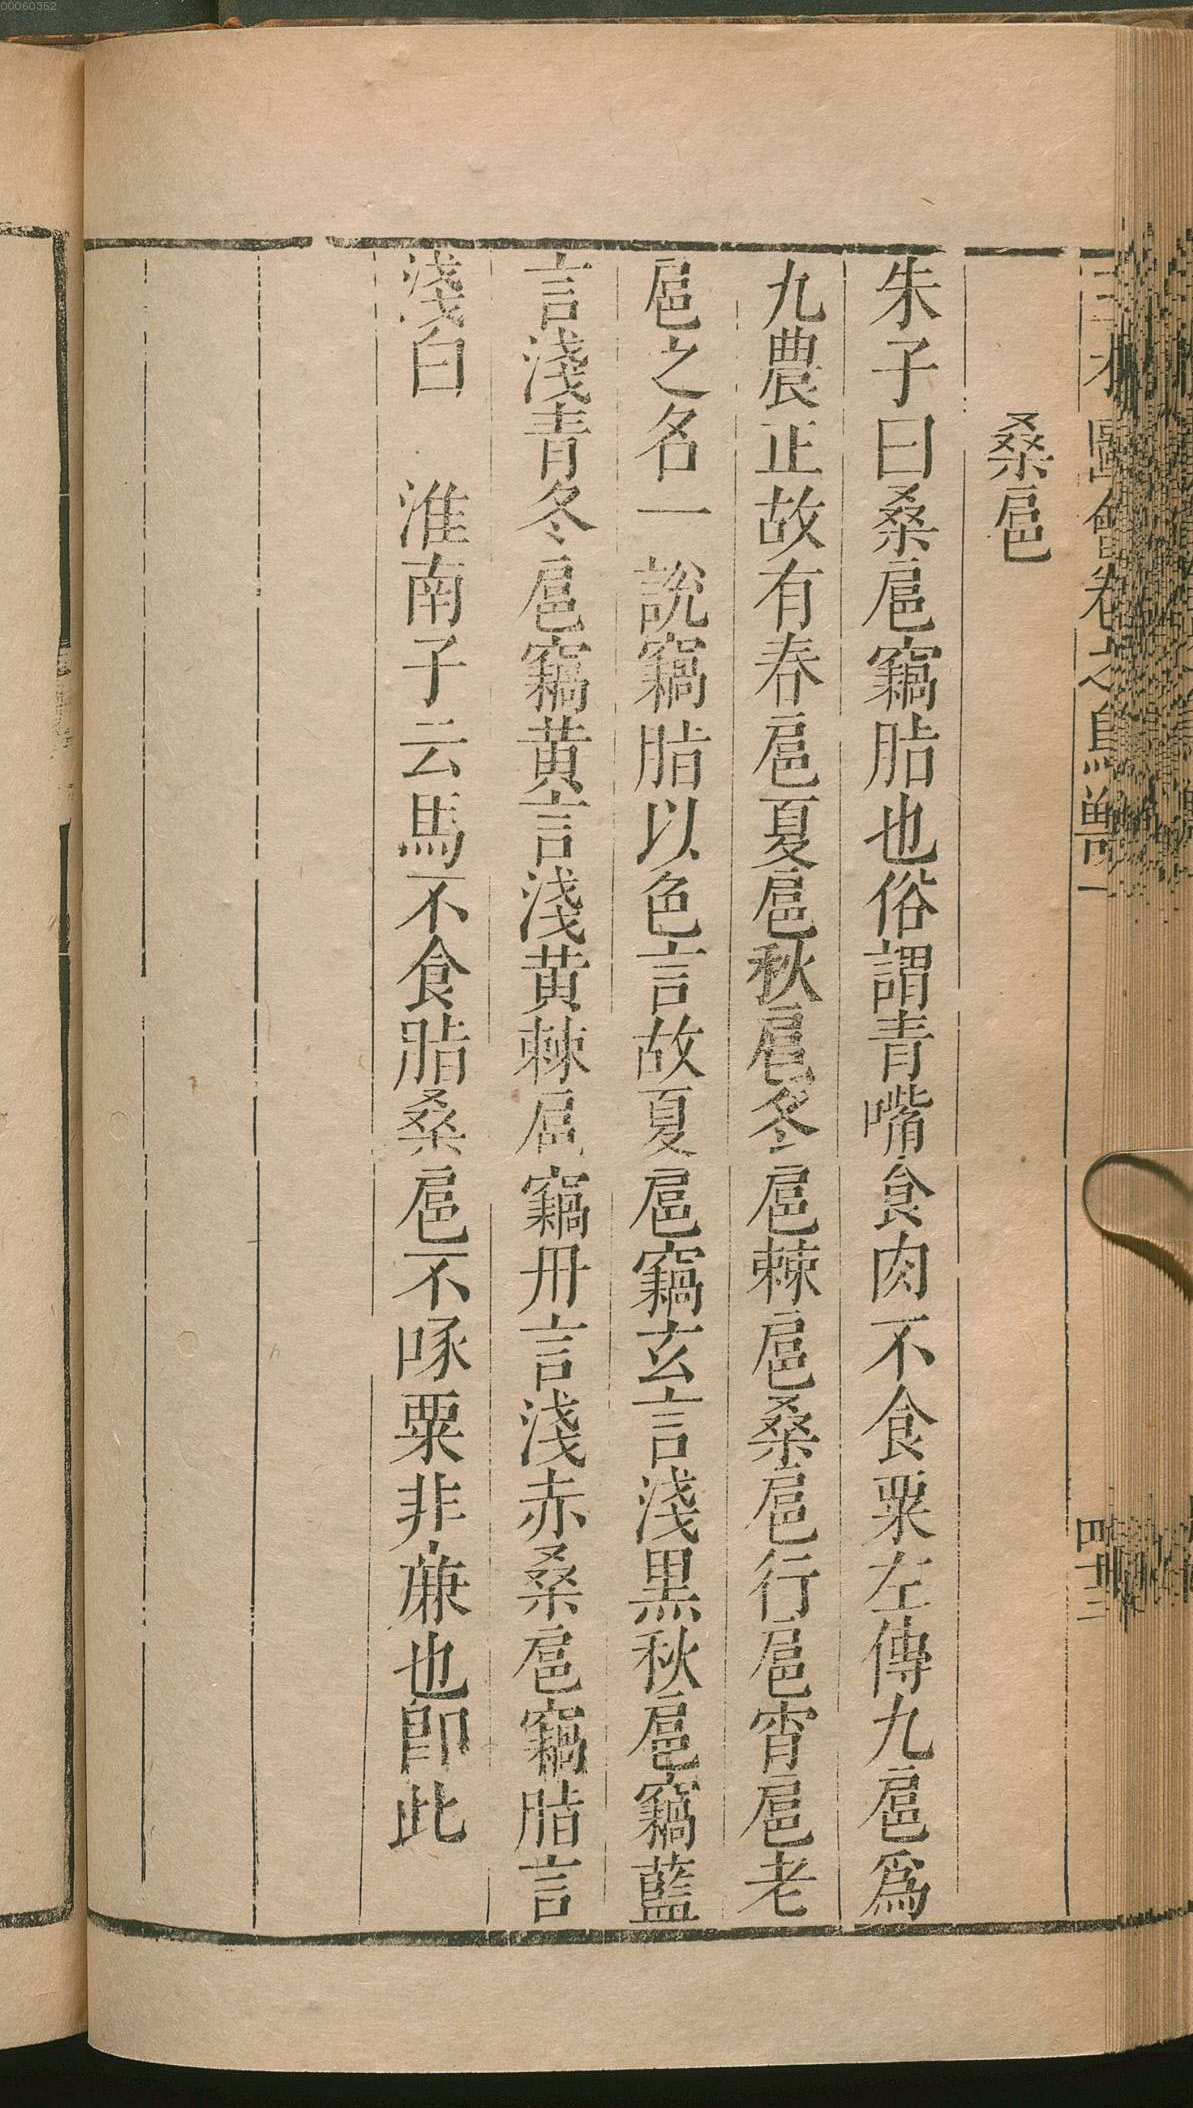 00060352
三才圖會卷之鳥獸一
四十三
桑扈
朱子曰桑扈竊脂也俗謂青嘴食肉不食粟左傳九扈爲
九農正故有春扈夏扈秋扈冬扈棘扈桑扈行扈宵扈老
扈之名一說竊脂以色言故夏扈竊玄言淺黑秋扈竊藍
言淺青冬扈竊黄言淺黄棘扈竊丹言淺赤桑扈竊脂言
淺白　淮南子云馬不食脂桑扈不啄粟非亷也即此